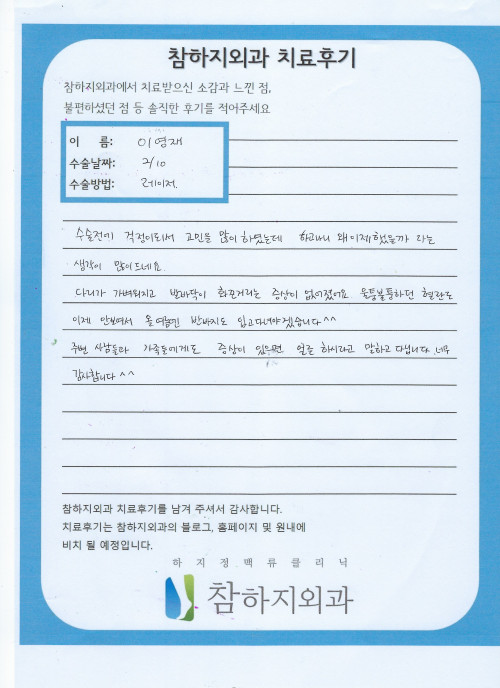 참하지외과 치료후기
참하지외과에서 치료받으신 소감과 느낀 점,
불편하셨던 점 등 솔직한 후기를 적어주세요
이 름: 이영재
수술날짜: 2/10
수술방법: 레이저.
수술전에 걱정이되서 고민을 많이 하였는데 하고나니 왜이제했을까 라는
생각이 많이드네요.
다리가 가벼워지고 발바닥이 화끈거리는 증상이 없어졌어요 울퉁불퉁하던 혈관도
이제 안보여서 올 여름엔 반바지도 입고다녀야겠습니다^^
주변 사람들과 가족들에게도 증상이 있으면 얼른 하시라고 말하고 다닙니다. 너무
감사합니다^^
참하지외과 치료후기를 남겨 주셔서 감사합니다.
치료후기는 참하지외과의 블로그, 홈페이지 및 원내에
비치 될 예정입니다.
하지정맥류클리닉
참하지외과